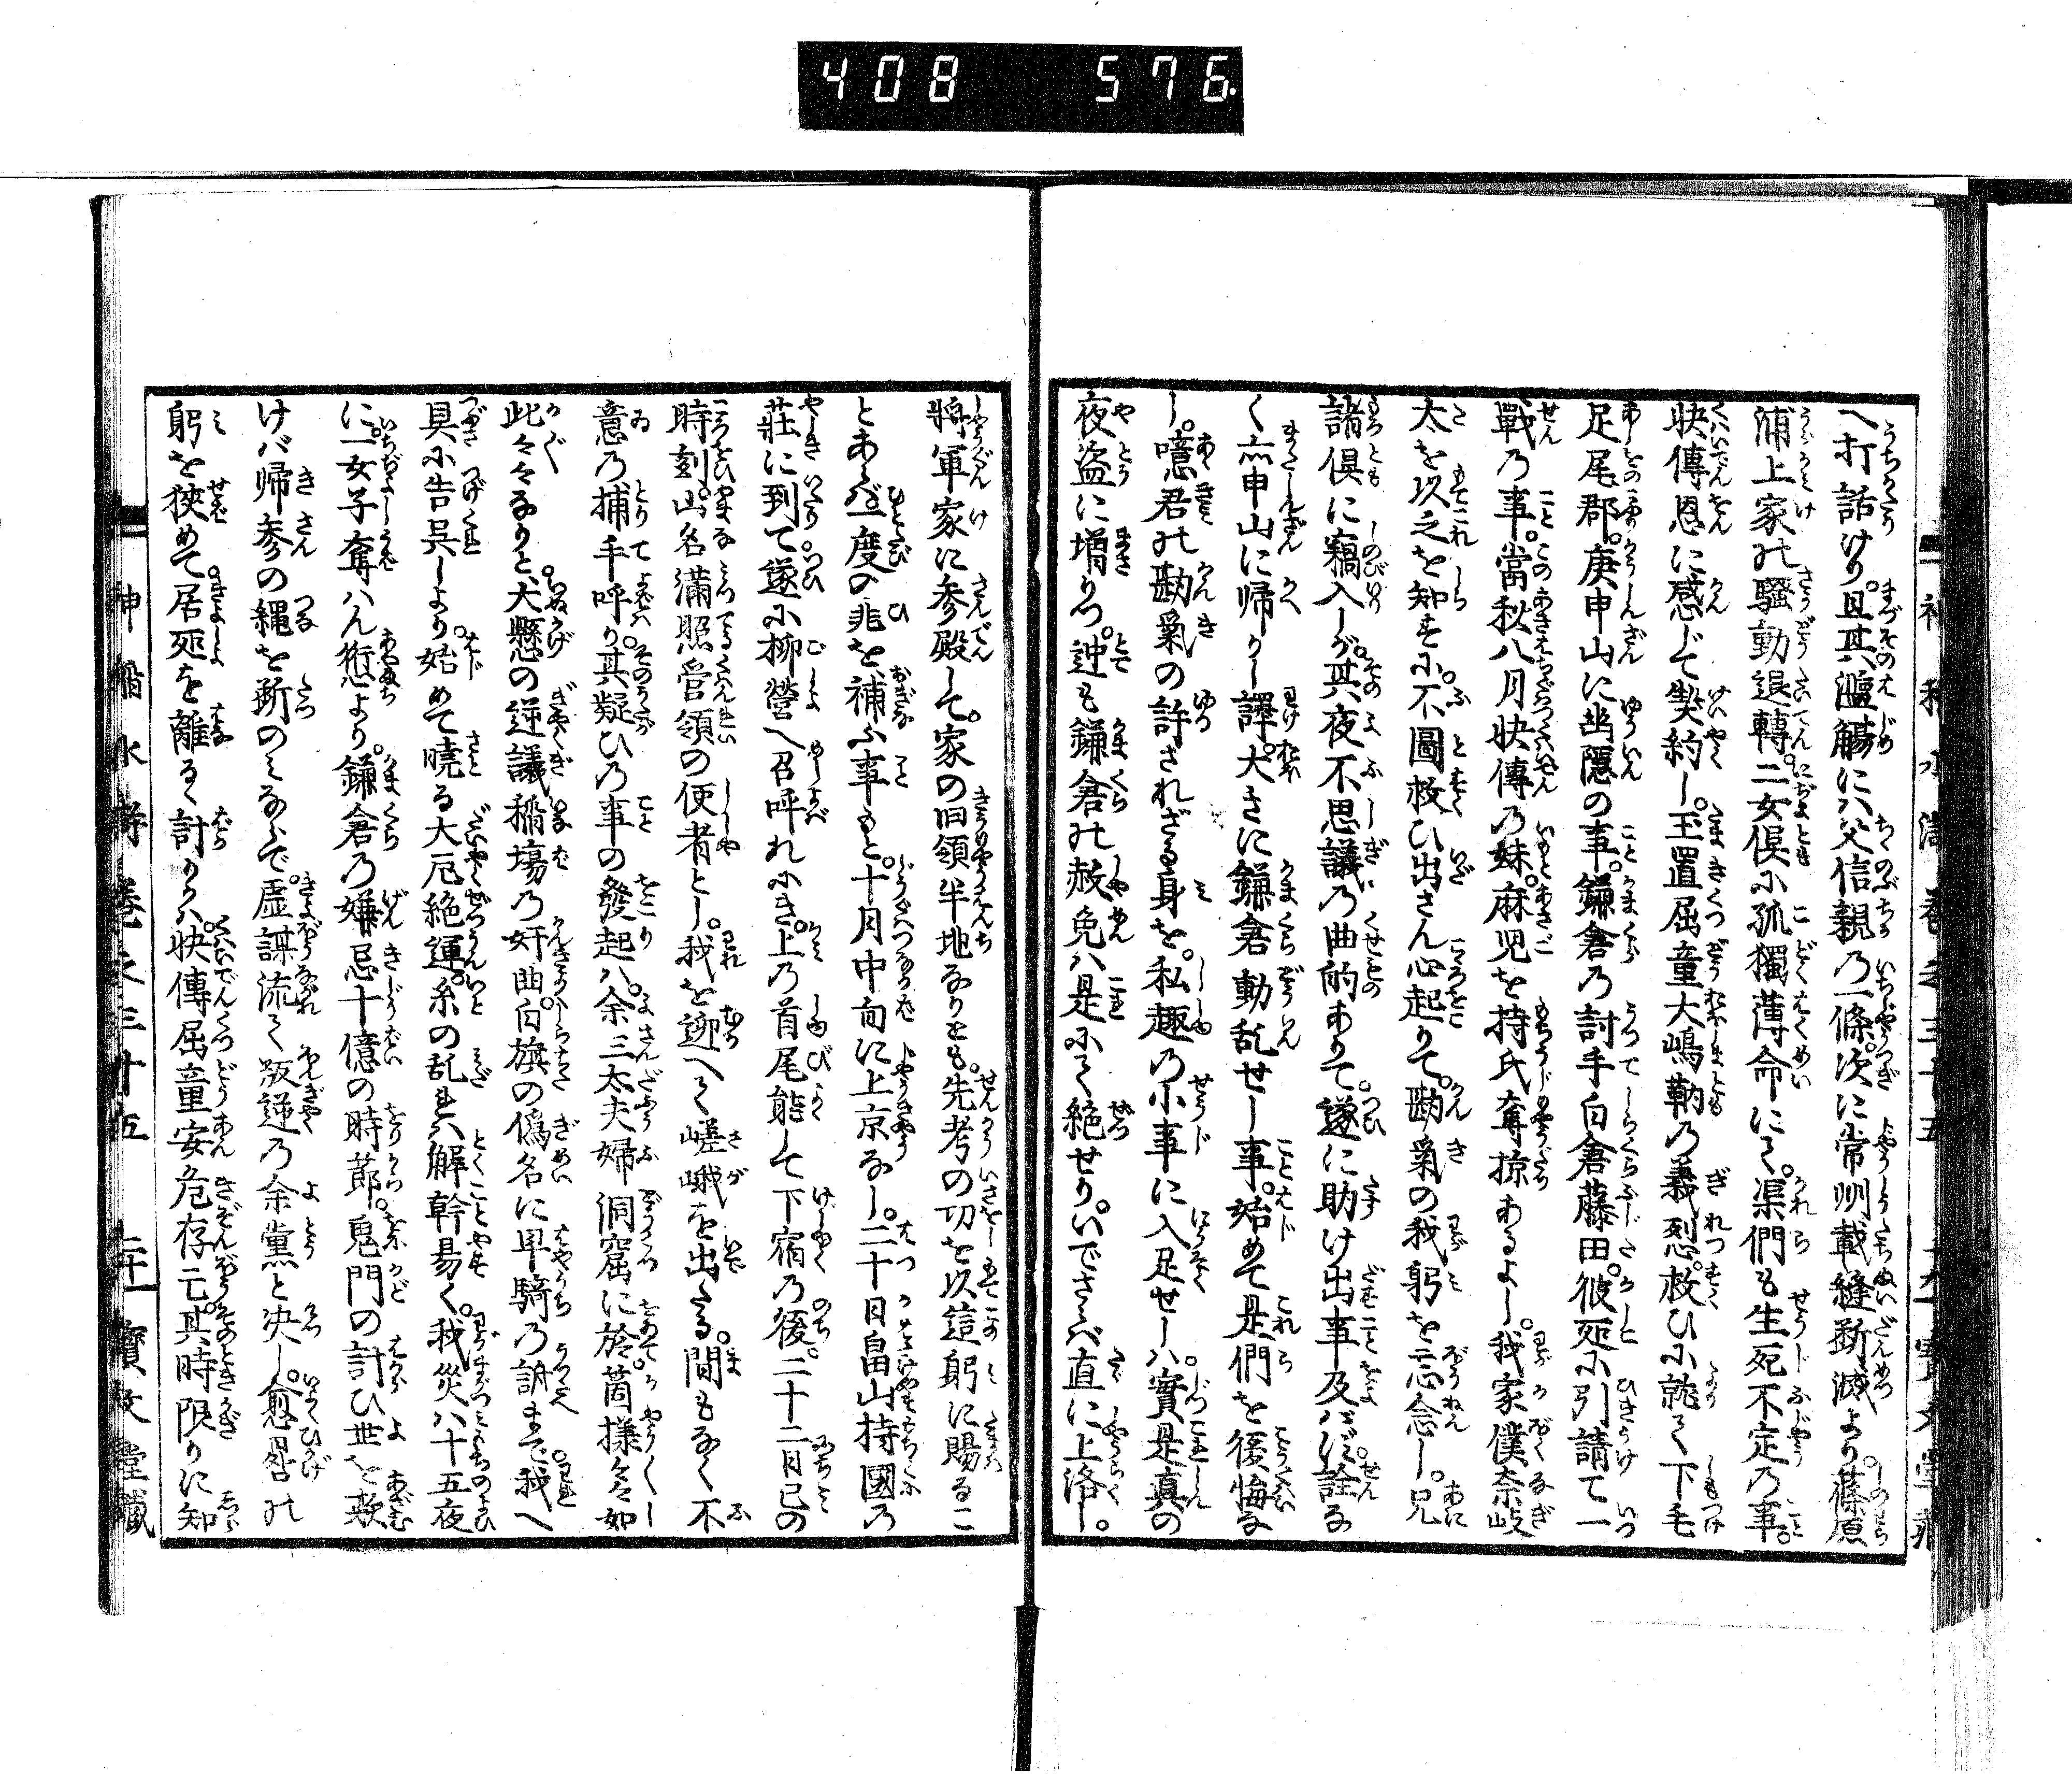 408 576
へ打話けり。且其濫觴に八父信親乃一條。次に常州載縫断滅より。篠原
浦上家の騒動退轉。二女倶に孤獨薄命にて。渠們も生死不定乃事。
快傳恩に感じて契約し。玉置屈童大嶋鞆乃義烈。救ひに能て下毛
足尾郡。庚申山に幽隠の事。鎌倉乃討手白倉藤田。彼死に引請て一
戰乃事。當秋八月快傳乃妹。麻児を持氏奪掠あるよし。我家僕奈岐
太を以之を知に。不圖救ひ出さん心起りて。勘氣の我躬を忘念し。兄
諸倶に竊入しが。其夜不思議乃曲的ありて。遂に助け出事及バず。詮な
く亦申山に帰りし譯。大きに鎌倉動乱せし事。始めて是們を後悔な
し。噫君の勘氣の許されざる身を。私趣乃小事に入足せし八。實是真の
夜盗に増りつ。迚も鎌倉の赦免八是にて絶せり。いでさらバ直に上洛し。
將軍家に参殿して。家の旧領半地なりとも。先考の功を以這躬に賜るこ
とあらバ。一度の非を補ふ事もと。十月中旬に上京なし。二十日畠山持國乃
莊に到て遂に柳營へ召呼れにき。上乃首尾能して下宿乃後。二十二日巳の
時刻。山名満照管領の使者とし。我を迎へて嵯峨を出たる。間もなく不
意乃捕手呼り。其疑ひの事の發起八。余三太夫婦洞窟に於。箇様々々如
此々々なりと。犬懸の逆議稲塲乃奸曲。白旗の偽名に早騎乃訴まで。我へ
具に告呉しより。始めて曉る大厄絶運。糸の乱れ八解幹易く。我災八十五夜
に。一女子奪八ん愆より。鎌倉乃嫌忌十億の時節。鬼門の討ひ世を欺
けバ帰参の縄を断のミならで。虚謀流て叛逆乃余黨と决し。愈晷の
躬を狹めて居死を離るゝ討りハ。快傳屈童安危存亡。其時限りに知
神稲水滸巻之三十五 二十一 寶文堂藏